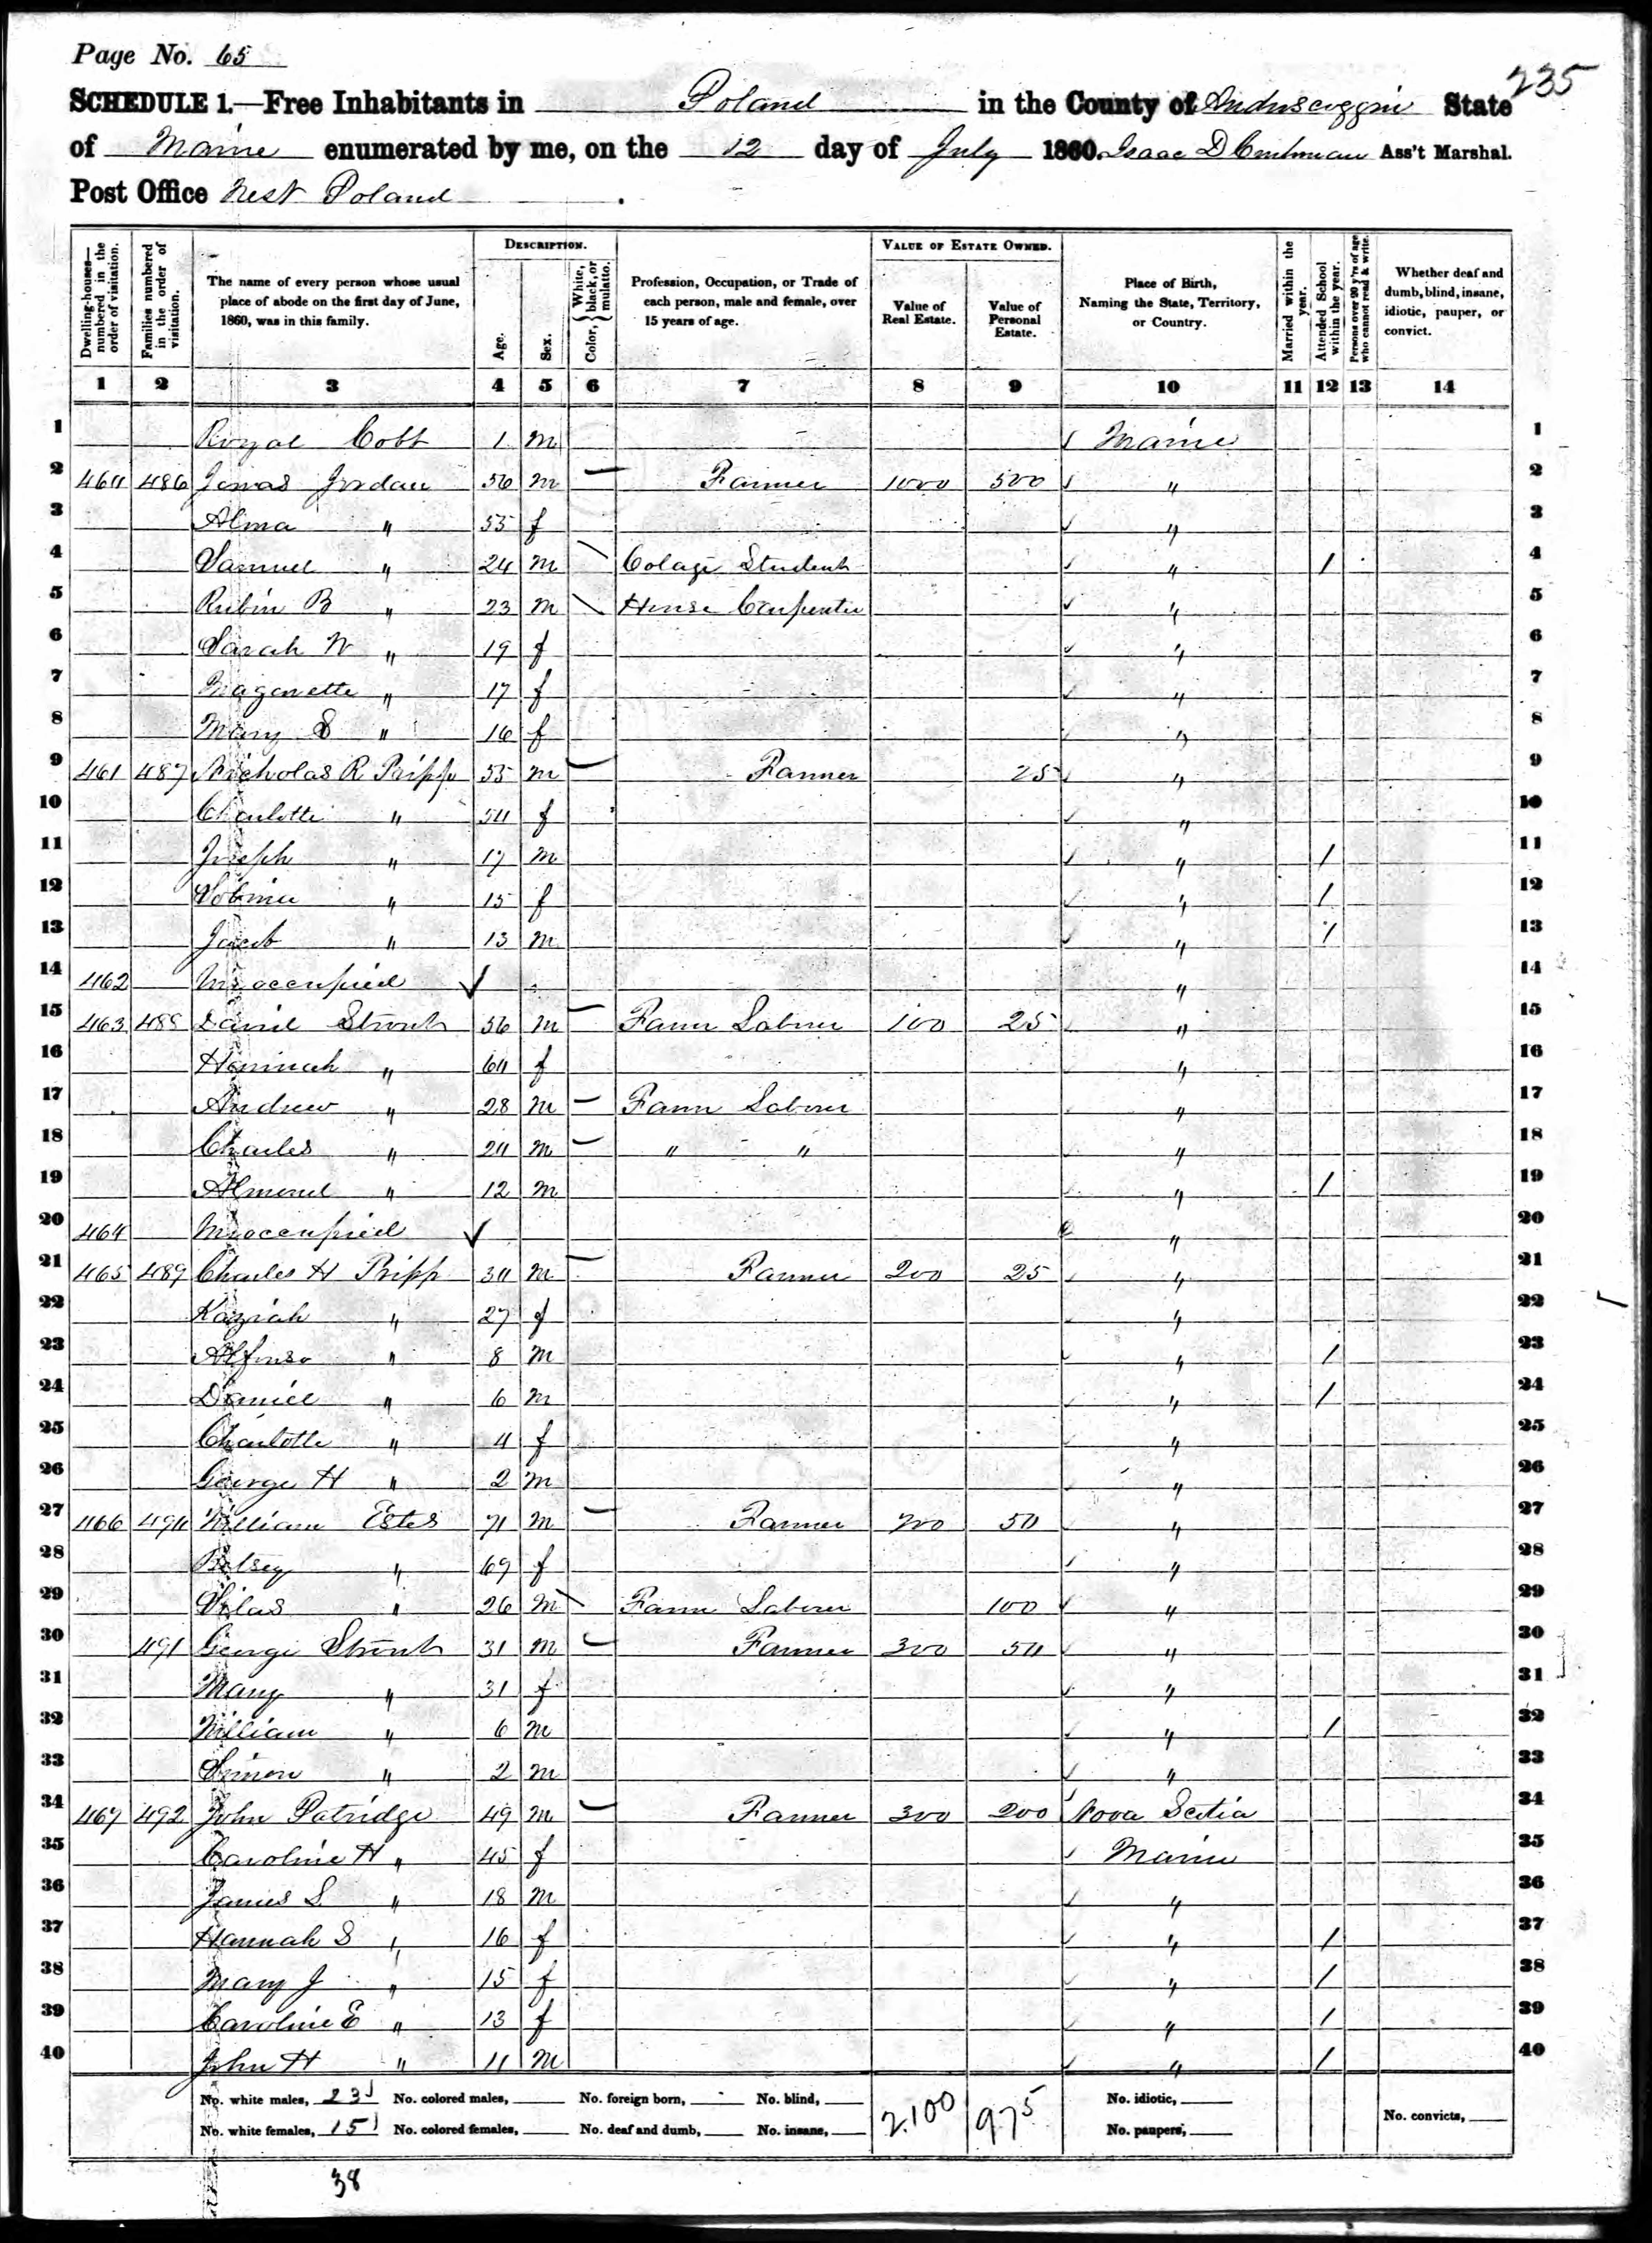 Page No. 65
235
SCHEDULE 1.—Free Inhabitants in Poland in the County of Androscoggin State
of Maine enumerated by me, on the 12 day of July 1860. Isaac D Cushman Ass't Marshal.
Post Office West Poland.
DESCRIPTION. VALUE OF ESTATE OWNED.
Dwelling-houses—numbered in the order of visitation.
Families numbered in the order of visitation.
The name of every person whose usual place of abode on the first day of June, 1860, was in this family.
Age.
Sex.
Color, White, black, or mulatto.
Profession, Occupation, or Trade of each person, male and female, over 15 years of age.
Value of Real Estate.
Value of Personal Estate.
Place of Birth, Naming the State, Territory, or Country.
Married within the year.
Attended School within the year.
Persons over 20 y'rs of age who cannot read & write.
Whether deaf and dumb, blind, insane, idiotic, pauper, or convict.
1 2 3 4 5 6 7 8 9 10 11 12 13 14
1 Royal Cobb 1 m Maine 1
2 460 486 Jonas Jordan 56 m Farmer 1000 500 " 2
3 Alma " 55 f " 3
4 Samuel " 24 m Colage Student " / 4
5 Rubin B " 23 m House Carpenter " 5
6 Sarah W " 19 f " 6
7 " 17 f " 7
8 Mary S " 16 f " 8
9 461 487 Nicholas R Tripp 55 m Farmer 25 " 9
10 Charlotte " 50 f " 10
11 Joseph " 17 m " / 11
12 " 15 f " / 12
13 Jacob " 13 m " / 13
14 462 Unoccupied ✓ " 14
15 463 488 David Strout 56 m Farm Laborer 100 25 " 15
16 Hannah " 60 f " 16
17 Andrew " 28 m Farm Laborer " 17
18 Charles " 20 m " " " 18
19 Almond " 12 m " / 19
20 464 Unoccupied ✓ " 20
21 465 489 Charles H Tripp 30 m Farmer 200 25 " 21
22 Kaziah " 27 f " 22
23 Alfonso " 8 m " / 23
24 Daniel " 6 m " / 24
25 Charlotte " 4 f " 25
26 George H " 2 m " 26
27 466 490 William Estes 71 m Farmer 50 " 27
28 Betsey " 69 f " 28
29 Silas " 26 m Farm Laborer 100 " 29
30 491 George Strout 31 m Farmer 300 50 " 30
31 Mary " 31 f " 31
32 William " 6 m " / 32
33 Simon " 2 m " 33
34 467 492 John Patridge 49 m Farmer 300 200 Nova Scotia 34
35 Caroline H " 45 f Maine 35
36 James L " 18 m " 36
37 Hannah S " 16 f " / 37
38 Mary J " 15 f " / 38
39 Caroline E " 13 f " / 39
40 John H " 11 m " / 40
No. white males, 23 No. colored males, No. foreign born, No. blind, 2100 975 No. idiotic,
No. white females, 15 No. colored females, No. deaf and dumb, No. insane, No. paupers, No. convicts,
38